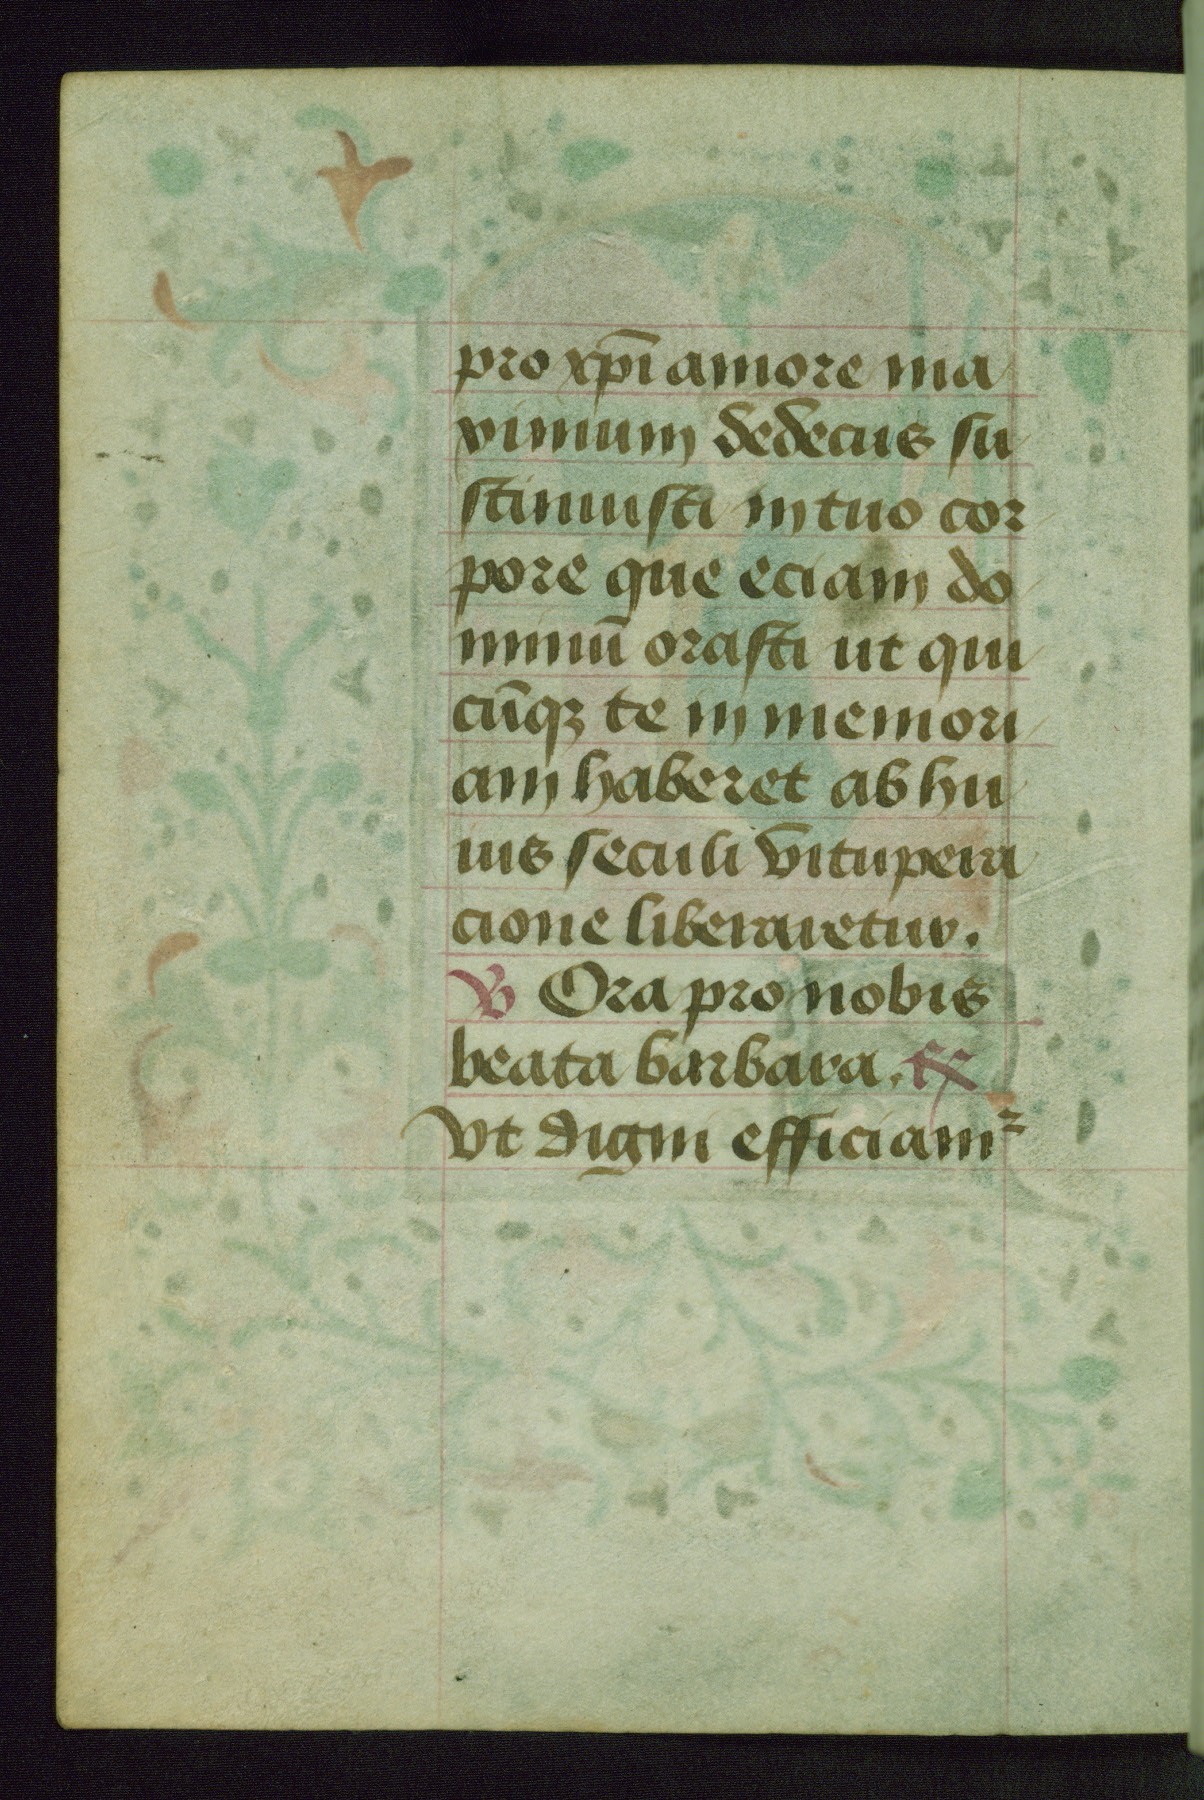 pro xp̄i amore ma
ximum dedecus su
stinuisti in tuo cor
pore que eciam do
minū orasti ut qui
cūqȝ te in memori
am haberet ab hu
ius seculi vitupera
cione liberaretur.
℣ Ora pro nobis
beata barbara. ℟
Vt digni efficiamᷣ